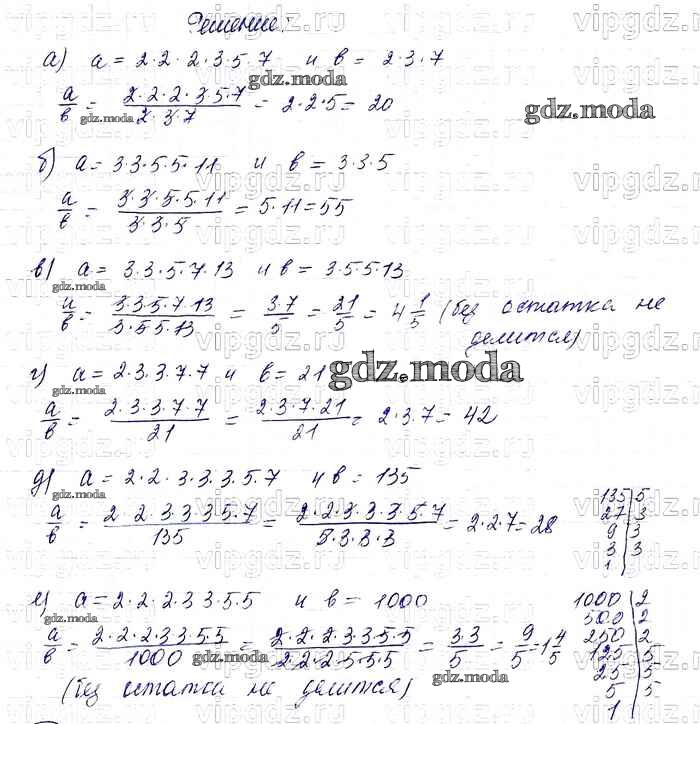 Решение:
а) a = 2·2·2·3·5·7 и b = 2·3·7
a/b = 2·2·2·3·5·7/2·3·7 = 2·2·5 = 20
б) a = 3·3·5·5·11 и b = 3·3·5
a/b = 3·3·5·5·11/3·3·5 = 5·11 = 55
в) a = 3·3·5·7·13 и b = 3·5·5·13
a/b = 3·3·5·7·13/3·5·5·13 = 3·7/5 = 21/5 = 4 1/5 (без остатка не
делится)
г) a = 2·3·3·7·7 и b = 21
a/b = 2·3·3·7·7/21 = 2·3·7·21/21 = 2·3·7 = 42
д) a = 2·2·3·3·3·5·7 и b = 135
a/b = 2·2·3·3·3·5·7/135 = 2·2·3·3·3·5·7/5·3·3·3 = 2·2·7 = 28
135 5
27 3
9 3
3 3
1
е) a = 2·2·2·3·3·5·5 и b = 1000
a/b = 2·2·2·3·3·5·5/1000 = 2·2·2·3·3·5·5/2·2·2·5·5·5 = 3·3/5 = 9/5 = 1 4/5
(без остатка не делится)
1000 2
500 2
250 2
125 5
25 5
5 5
1
gdz.moda
vipgdz.ru